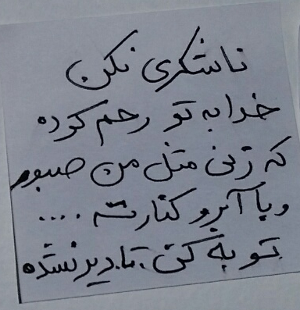 ناشکری نکن
خدا به تو رحم کرده
که زنی مثل من صبور
و با آبرو کنارته ....
توبه کن تا دیر نشده